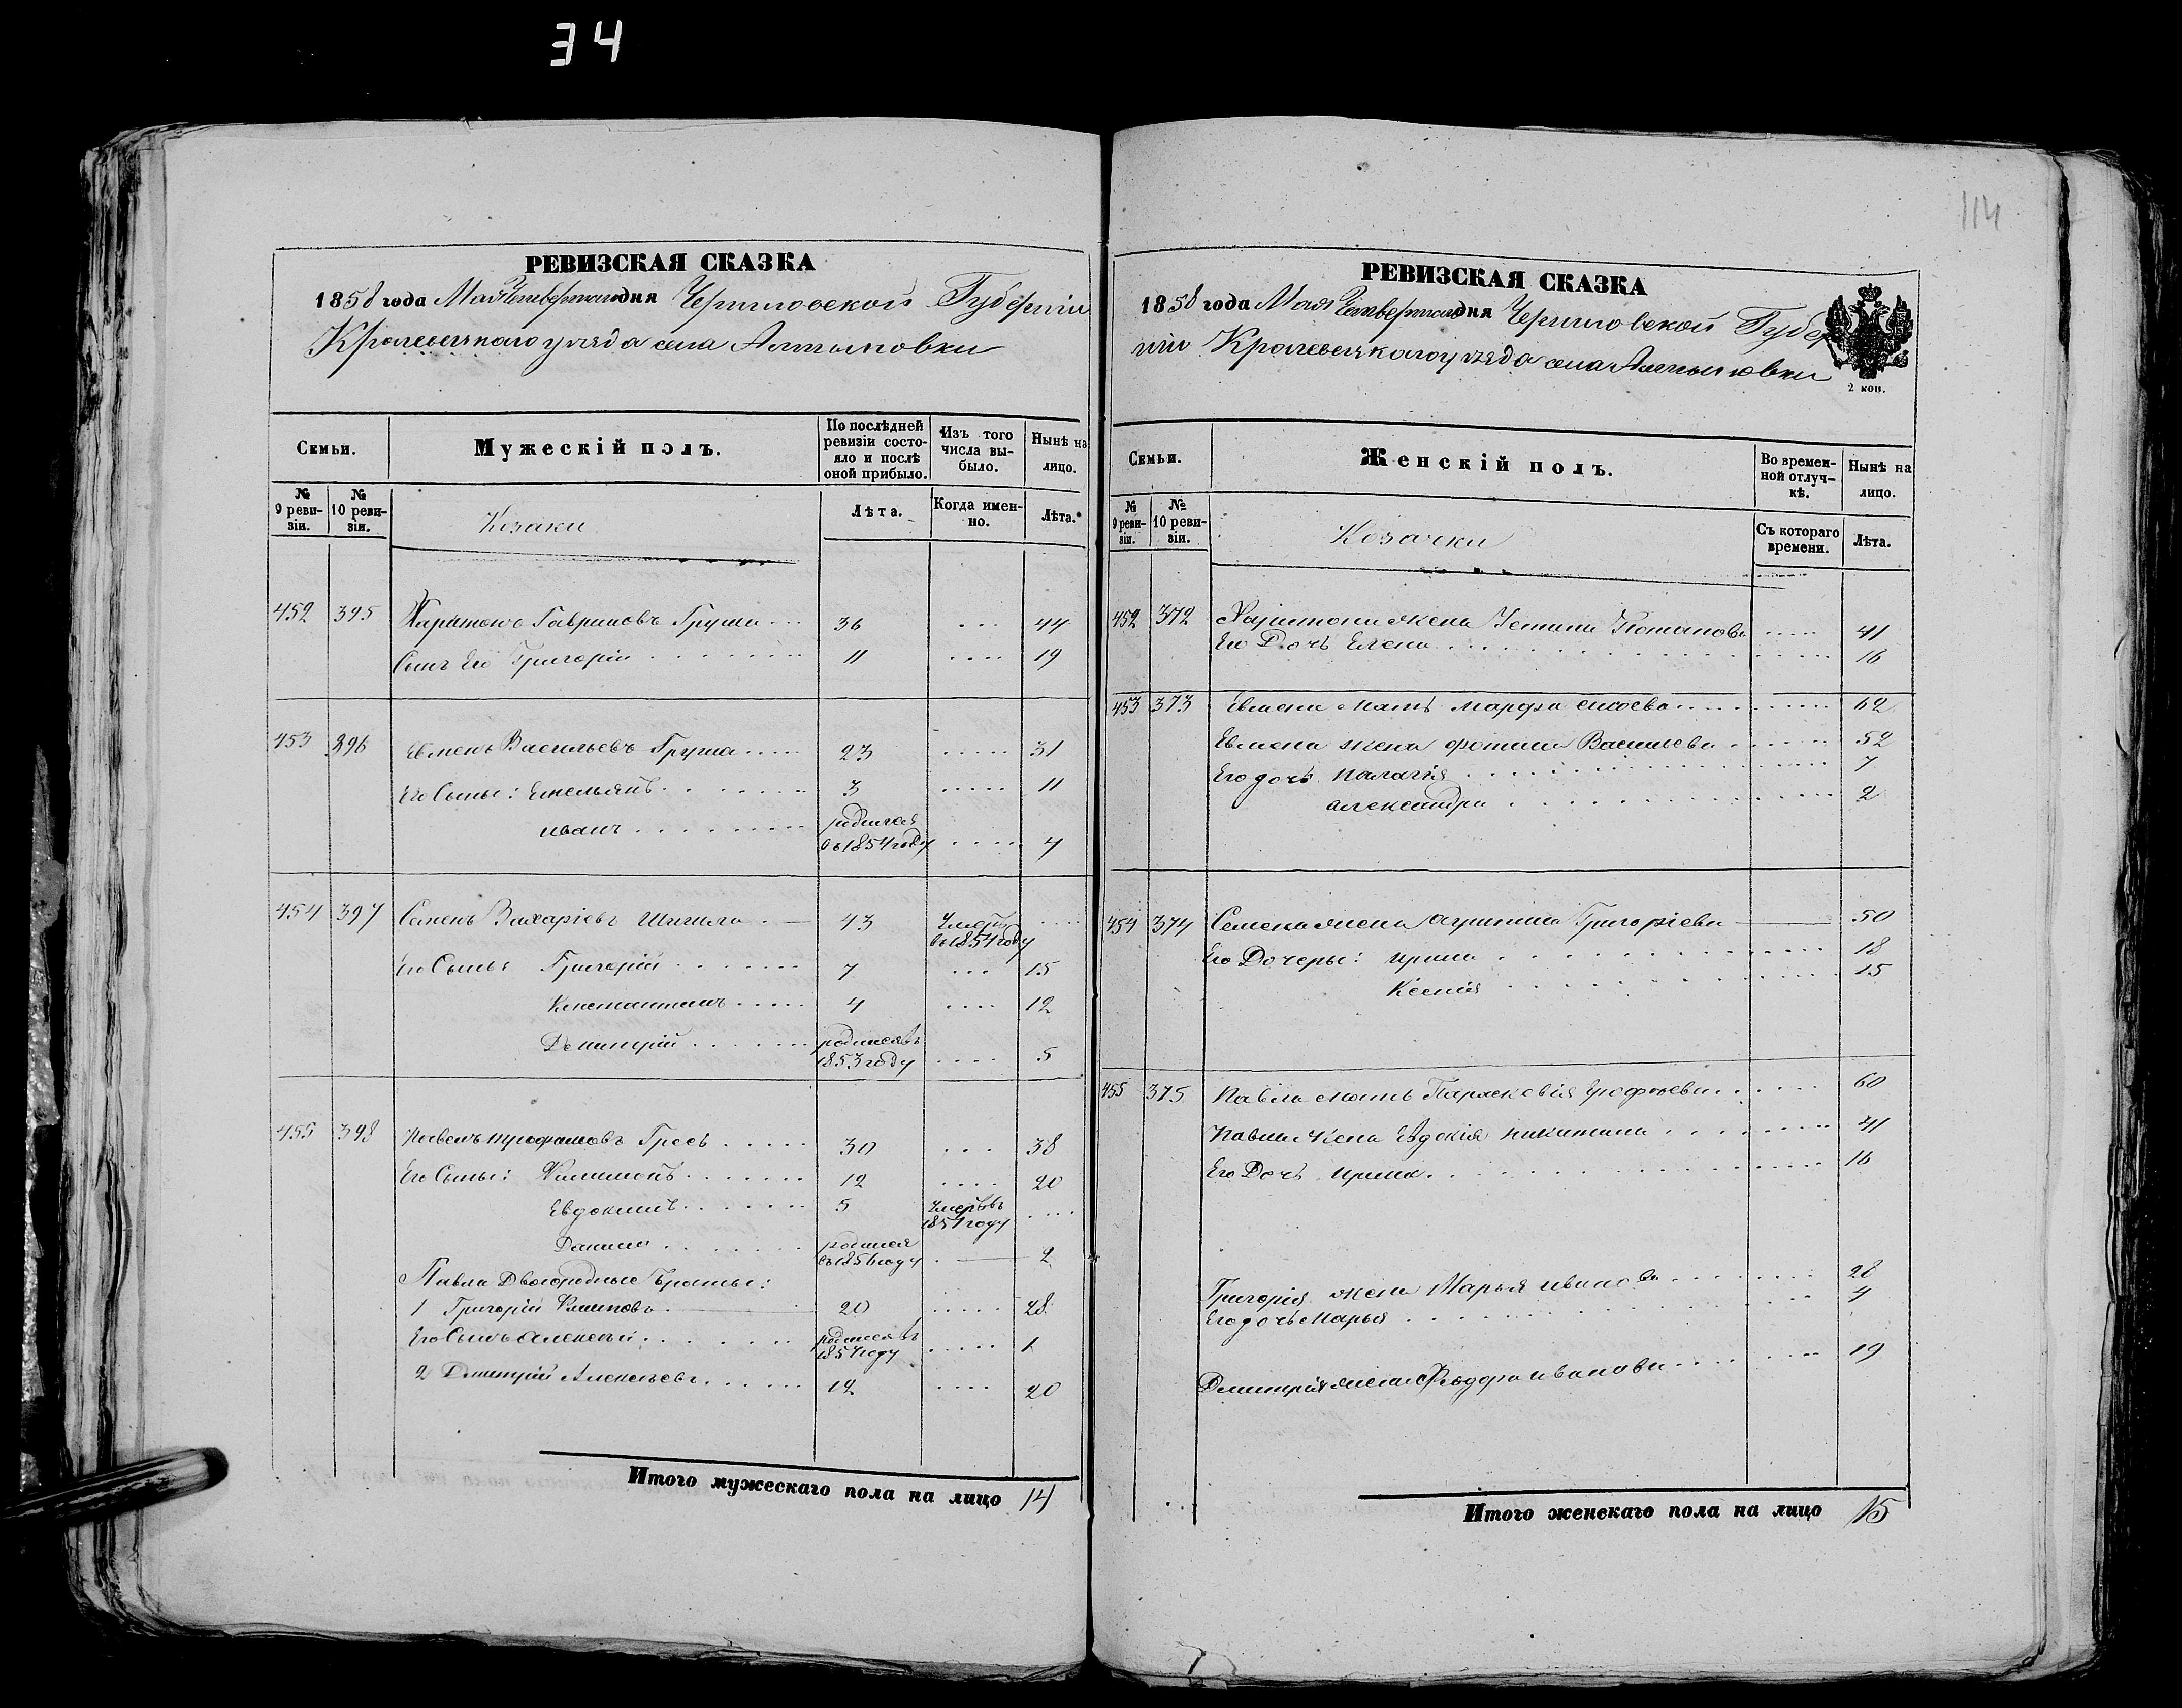 34
114
РЕВИЗСКАЯ СКАЗКА
1858 года Мая Четвертаго дня Черниговской Губерніи
Кролевецкаго уезда села Алтыновки
Семьи.
Мужескій полъ.
По послѣдней ревизіи состояло и послѣ оной прибыло.
Изъ того числа выбыло.
Нынѣ на лицо.
№ 9 ревизіи.
№ 10 ревизіи.
Козаки
Лѣта.
Когда именно.
Лѣта.
452 395 Харитонъ Гавриловъ Груша 36 44
Сынъ Его Григорій 11 19
453 396 Евменъ Васильевъ Груша 23 31
Его Сыны: Емельянъ 3 11
иванъ родился въ 1854 году 4
454 397 Семенъ Захаріевъ 43 Умеръ въ 1854 году
Его Сыны Григорій 7 15
Константинъ 4 12
Дмитрій родился въ 1853 году 5
455 398 Павелъ Гресь 30 38
Его Сыны: Филимонъ 12 20
Евдокимъ 5 Умеръ въ 1854 году
Данило родился въ 1856 году 2
Павла Двоюродные Братья:
1 Григорій Климовъ 20 28
Его Сынъ Алексей родился въ 1857 году 1
2 Дмитрій Алексеевъ 12 20
Итого мужескаго пола на лицо 14
РЕВИЗСКАЯ СКАЗКА
1858 года Мая Четвертаго дня Черниговской Губер
ніи Кролевецкаго уезда села Алтыновки
2 коп.
Семьи.
Женскій полъ.
Во временной отлучкѣ.
Нынѣ на лицо.
№ 9 ревизіи.
№ 10 ревизіи.
Козачки
Съ котораго времени.
Лѣта.
452 372 Харитона жена Устина Потапова 41
Его Дочь Елена 16
453 373 Евмена мать марфа 62
Евмена жена фотина Васильева 52
Его дочь палагія 7
александра 2
454 374 Семена жена Григоріева 50
Его Дочеры: ирина 18
Ксенія 15
455 375 Павла мать Парасковія 60
Павла жена Евдокія никитина 41
Его Дочь ирина 16
Григорія жена Марья иванова 28
Его дочь Марья 4
Дмитрія жена иванова 19
Итого женскаго пола на лицо 15